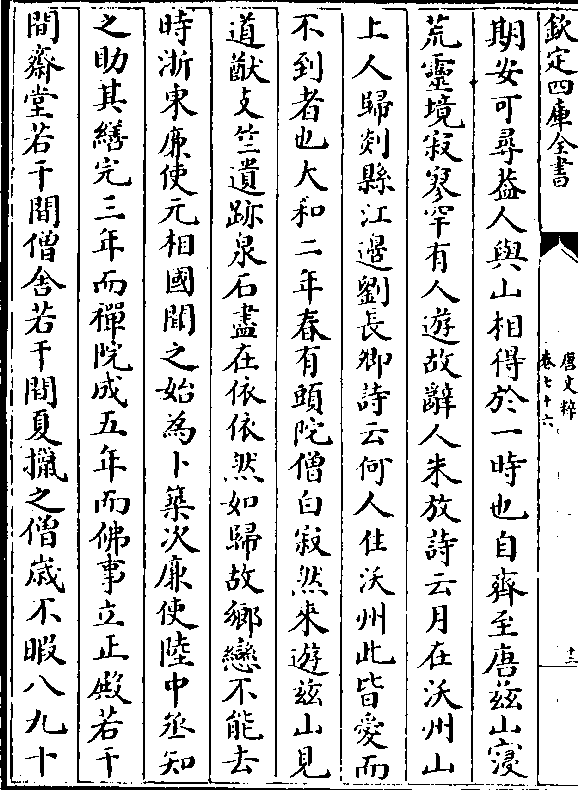 欽定四庫全書
唐文粹
卷七十六
十二
期安可尋葢人與山相得於一時也自齊至唐兹山寖
荒靈境寂寥罕有人遊故辭人朱放詩云月在沃州山
上人歸剡縣江邊劉長卿詩云何人住沃州此皆愛而
不到者也大和二年春有頭陀僧白寂然來遊兹山見
道猷支竺遺跡泉石盡在依依然如歸故鄉戀不能去
時浙東廉使元相國聞之始為卜築次廉使陸中丞知
之助其繕完三年而禪院成五年而佛事立正殿若干
間齋堂若干間僧舍若干間夏臘之僧歲不暇八九十